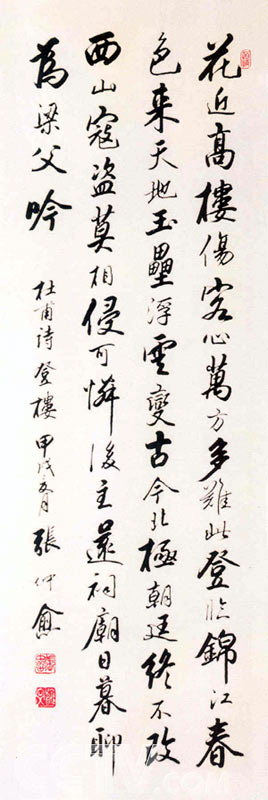 花近高樓傷客心萬方多難此登臨錦江春
色来天地玉壘浮雲變古今北極朝廷終不改
西山寇盗莫相侵可憐後主還祠廟日暮聊
為梁父吟
杜甫诗登樓甲戌五月張仲愈